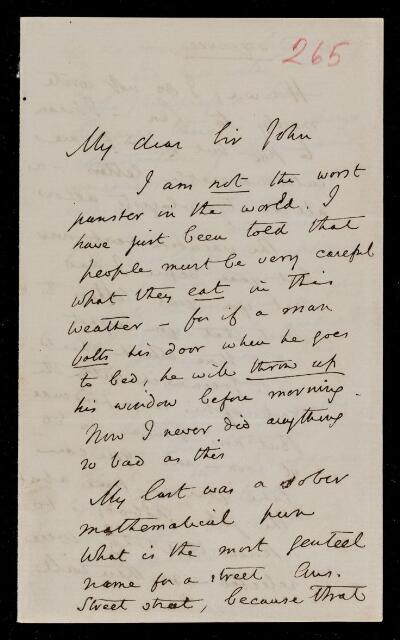 265
My dear Sir John
I am not the worst
punster in the world. I
have just been told that
people must be very careful
what they eat in this
weather – for if a man
bolts his door when he goes
to bed, he will throw up
his window before morning.
Now I never did anything
so bad as this
My last was a sober
mathematical pun
What is the most genteel
name for a street Ans.
Street street, because that